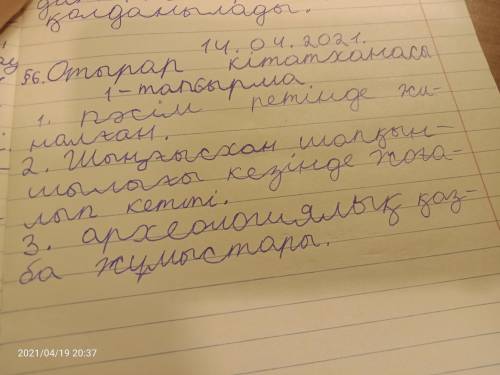 қолданылады.
14.04.2021.
§6. Отырар кітатханасы
1-тапсырма
1. Рәсім ретінде жи-
налған.
2. Шыңғысхан шапқын-
шылығы кезінде жоға-
лып кетті.
3. археологиялық қаз-
ба жұмыстары.
2021/04/19 20:37